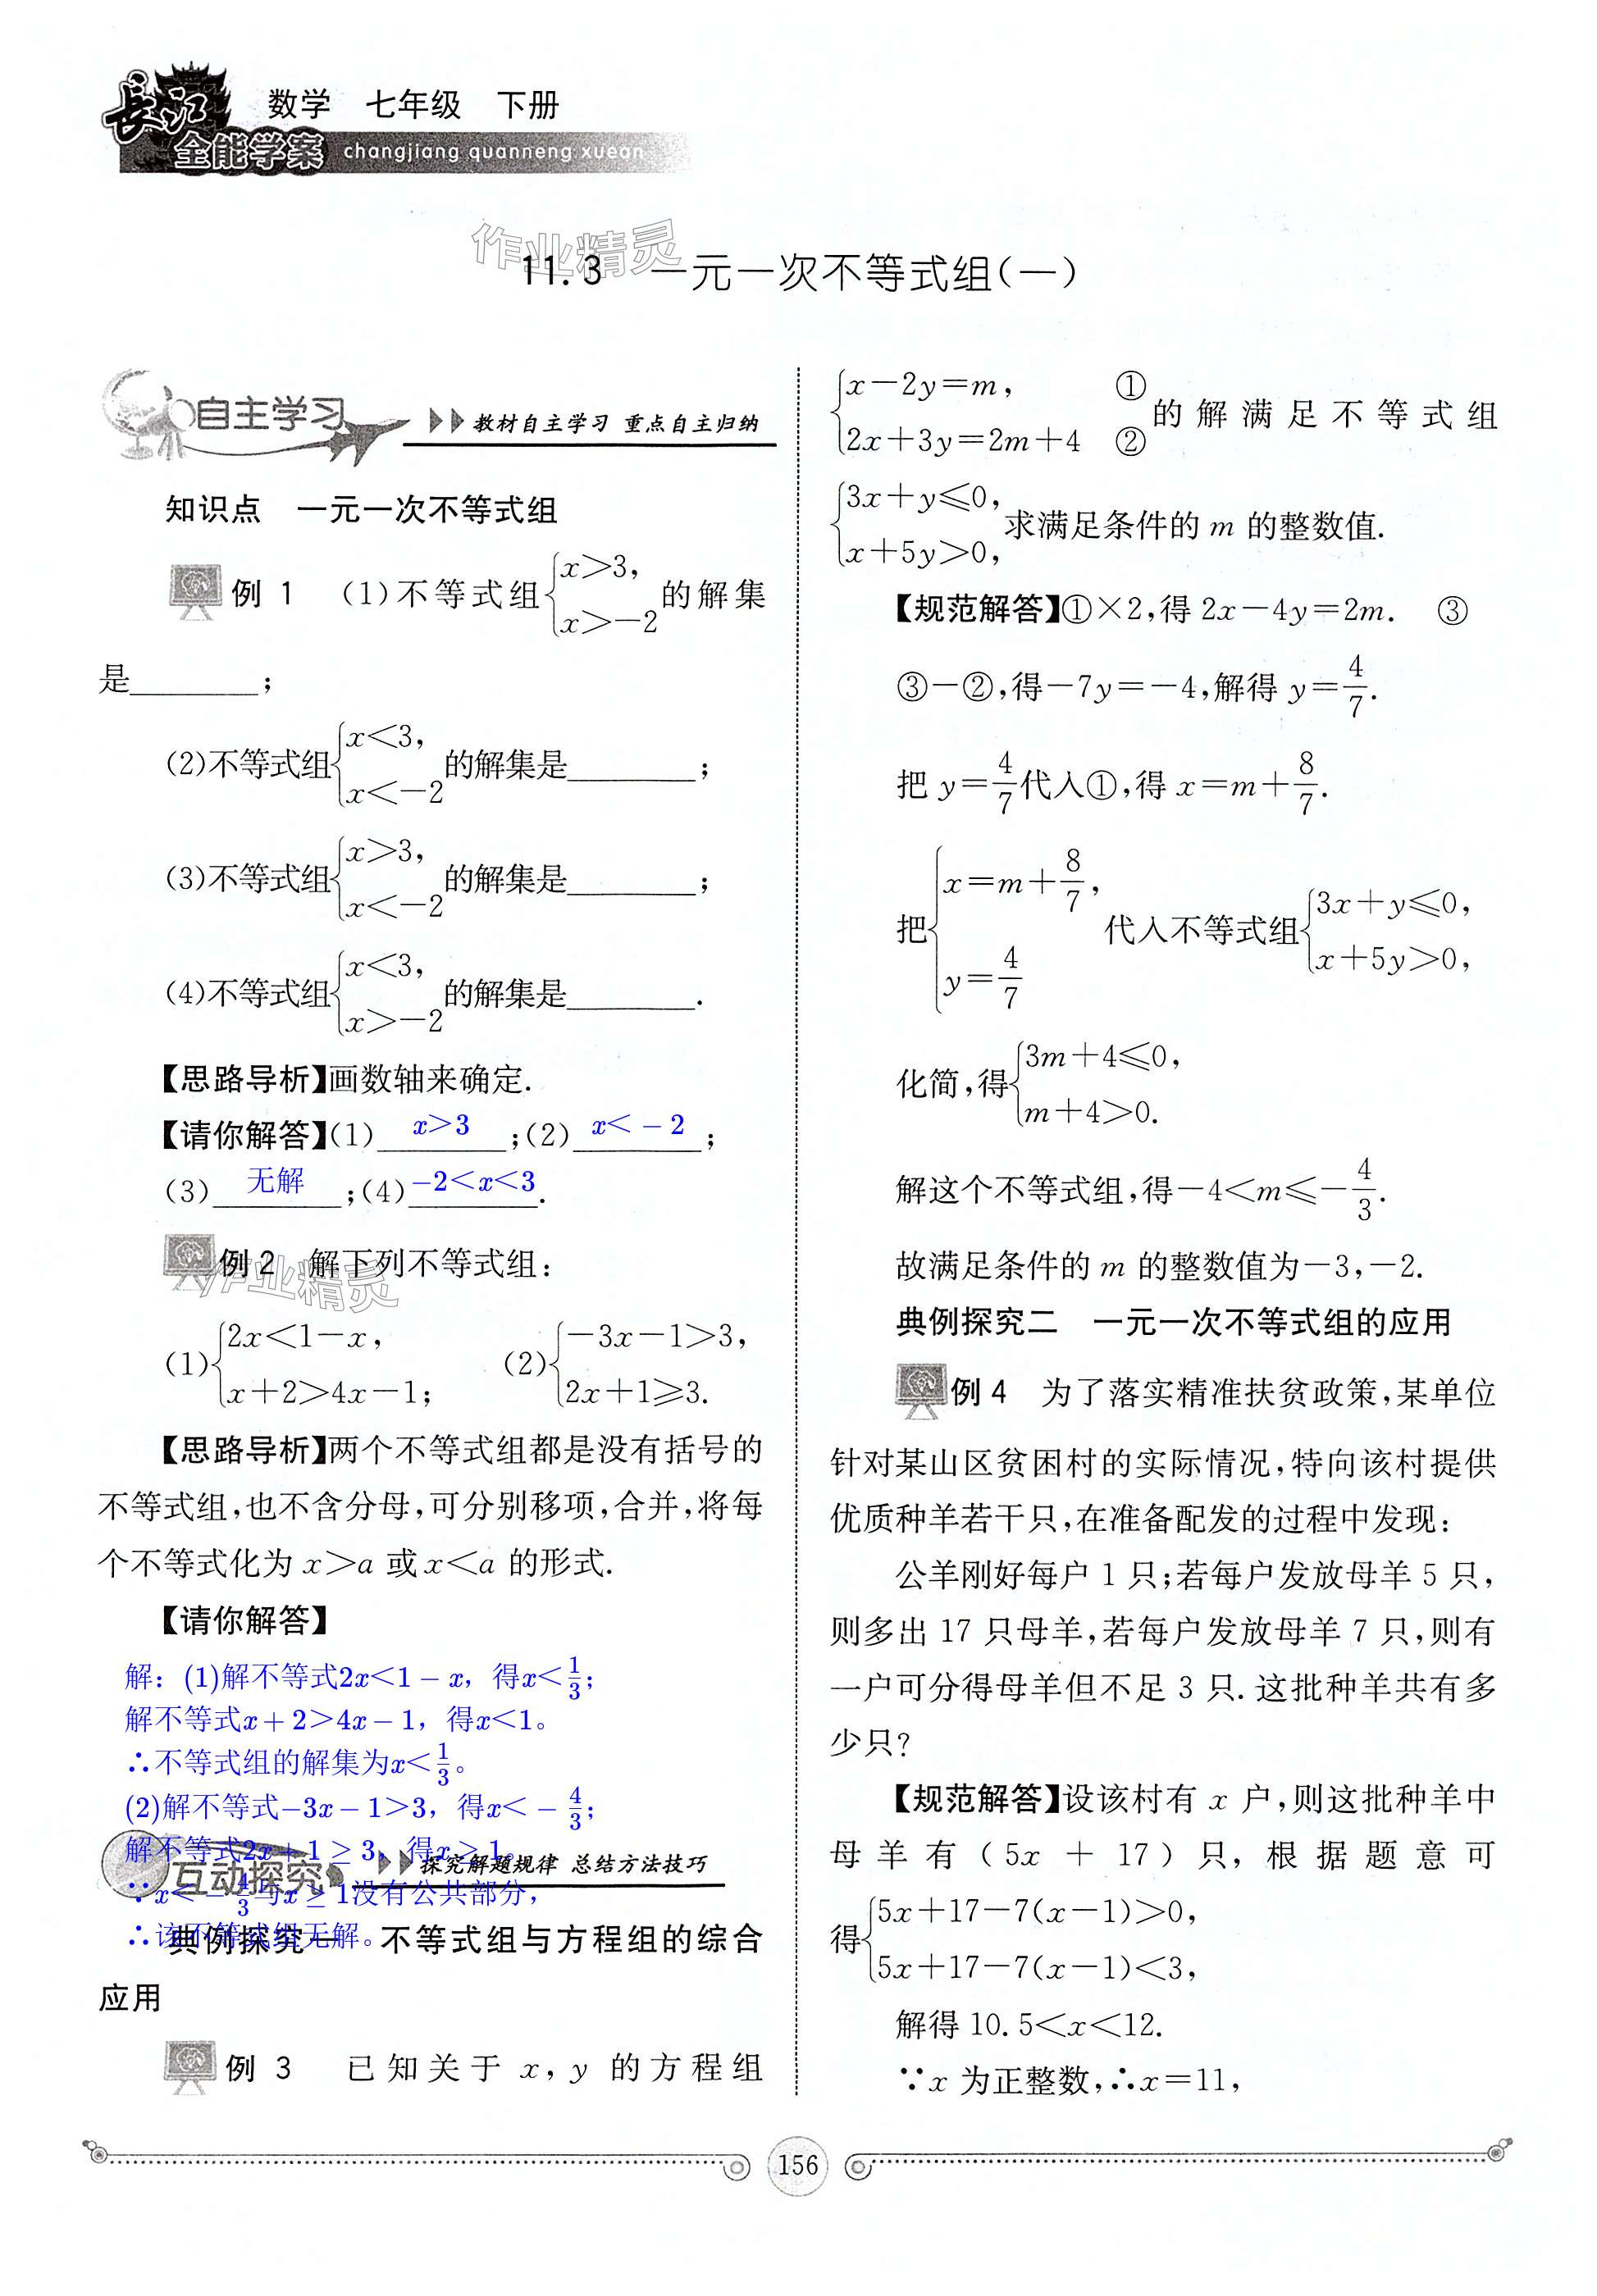 长江
数学 七年级 下册
全能学案 changjiang quanneng xuean
作业精灵
11.3 一元一次不等式组(一)
自主学习 教材自主学习 重点自主归纳
知识点 一元一次不等式组
例 1 (1)不等式组{x>3, x>-2 的解集
是________;
(2)不等式组{x<3, x<-2 的解集是________;
(3)不等式组{x>3, x<-2 的解集是________;
(4)不等式组{x<3, x>-2 的解集是________.
【思路导析】画数轴来确定.
【请你解答】(1) x>3 ;(2) x<-2 ;
(3) 无解 ;(4) -2<x<3 .
例2 解下列不等式组:
作业精灵
(1){2x<1-x, x+2>4x-1; (2){-3x-1>3, 2x+1≥3.
【思路导析】两个不等式组都是没有括号的
不等式组,也不含分母,可分别移项,合并,将每
个不等式化为 x>a 或 x<a 的形式.
【请你解答】
解：(1)解不等式2x<1-x，得x<1/3；
解不等式x+2>4x-1，得x<1。
∴不等式组的解集为x<1/3。
(2)解不等式-3x-1>3，得x<-4/3；
解不等式2x+1≥3，得x≥1。
互动探究 探究解题规律 总结方法技巧
∵x<-4/3与x≥1没有公共部分，
∴该不等式组无解。
典例探究一 不等式组与方程组的综合
应用
例 3 已知关于 x,y 的方程组
{x-2y=m, ① 2x+3y=2m+4 ② 的解满足不等式组
{3x+y≤0, x+5y>0, 求满足条件的 m 的整数值.
【规范解答】①×2,得 2x-4y=2m. ③
③-②,得-7y=-4,解得 y=4/7.
把 y=4/7代入①,得 x=m+8/7.
把{x=m+8/7, y=4/7 代入不等式组{3x+y≤0, x+5y>0,
化简,得{3m+4≤0, m+4>0.
解这个不等式组,得-4<m≤-4/3.
故满足条件的 m 的整数值为-3,-2.
典例探究二 一元一次不等式组的应用
例4 为了落实精准扶贫政策,某单位
针对某山区贫困村的实际情况,特向该村提供
优质种羊若干只,在准备配发的过程中发现:
公羊刚好每户 1 只;若每户发放母羊 5 只,
则多出 17 只母羊,若每户发放母羊 7 只,则有
一户可分得母羊但不足 3 只.这批种羊共有多
少只?
【规范解答】设该村有 x 户,则这批种羊中
母羊有(5x + 17)只,根据题意可
得{5x+17-7(x-1)>0, 5x+17-7(x-1)<3,
解得 10.5<x<12.
∵x 为正整数,∴x=11,
156